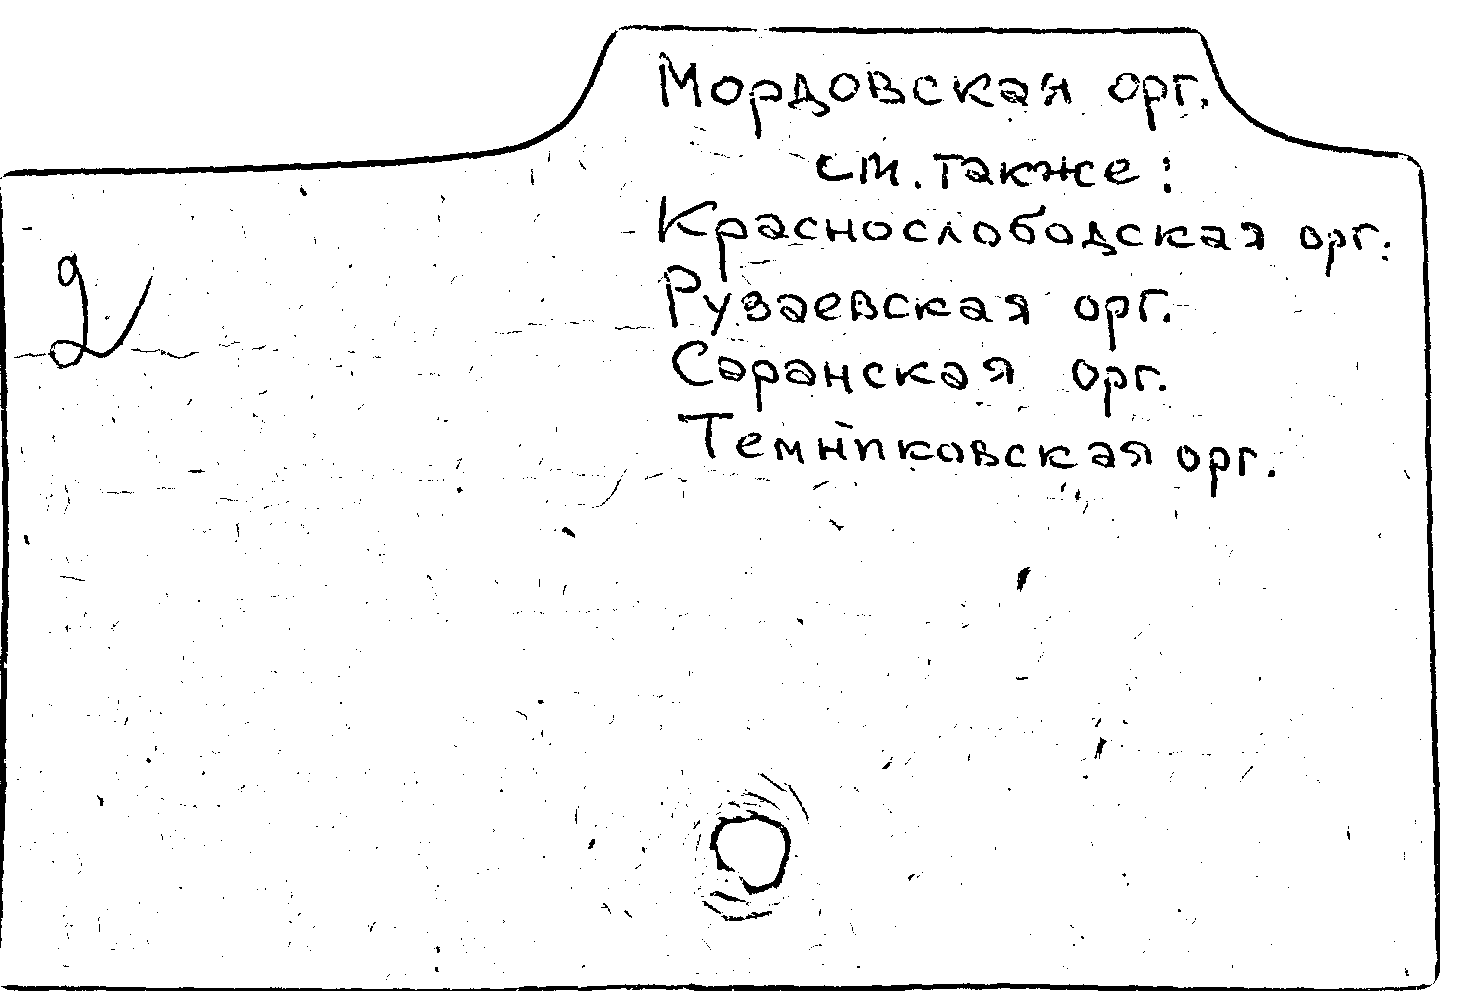 Мордовская орг.
см. также:
Краснослободская орг.
Рузаевская орг.
2
Саранская орг.
Темниковская орг.